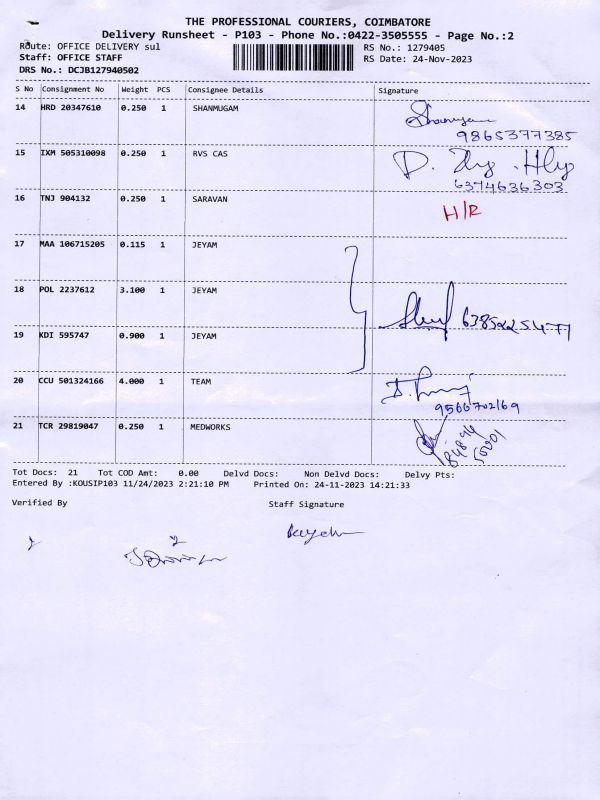 THE PROFESSIONAL COURIERS, COIMBATORE
Delivery Runsheet - P103 - Phone No.:0422-3505555 - Page No.:2
Route: OFFICE DELIVERY sul RS No.: 1279405
Staff: OFFICE STAFF RS Date: 24-Nov-2023
DRS No.: DCJB127940502
S No Consignment No Weight PCS Consignee Details Signature
14 HRD 20347610 0.250 1 SHANMUGAM Shanmugam
9865377385
15 IXM 505310098 0.250 1 RVS CAS
6374636303
16 TNJ 904132 0.250 1 SARAVAN H/R
17 MAA 106715205 0.115 1 JEYAM
18 POL 2237612 3.100 1 JEYAM
6385225477
19 KDI 595747 0.900 1 JEYAM
20 CCU 501324166 4.000 1 TEAM
9566702169
21 TCR 29819047 0.250 1 MEDWORKS
84894
50001
Tot Docs: 21 Tot COD Amt: 0.00 Delvd Docs: Non Delvd Docs: Delvy Pts:
Entered By :KOUSIP103 11/24/2023 2:21:10 PM Printed On: 24-11-2023 14:21:33
Verified By Staff Signature